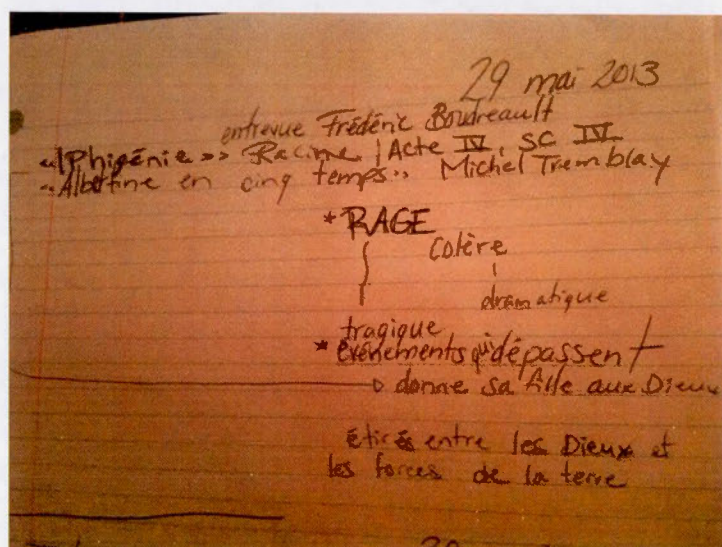 29 mai 2013
entrevue Frédéric Boudreault
«Iphigénie» Racine | Acte IV, SC IV
«Albertine en cinq temps» Michel Tremblay
* RAGE
Colère
dramatique
tragique
* événements qui dépassent
donne sa fille aux Dieux
étirés entre les Dieux et
les forces de la terre